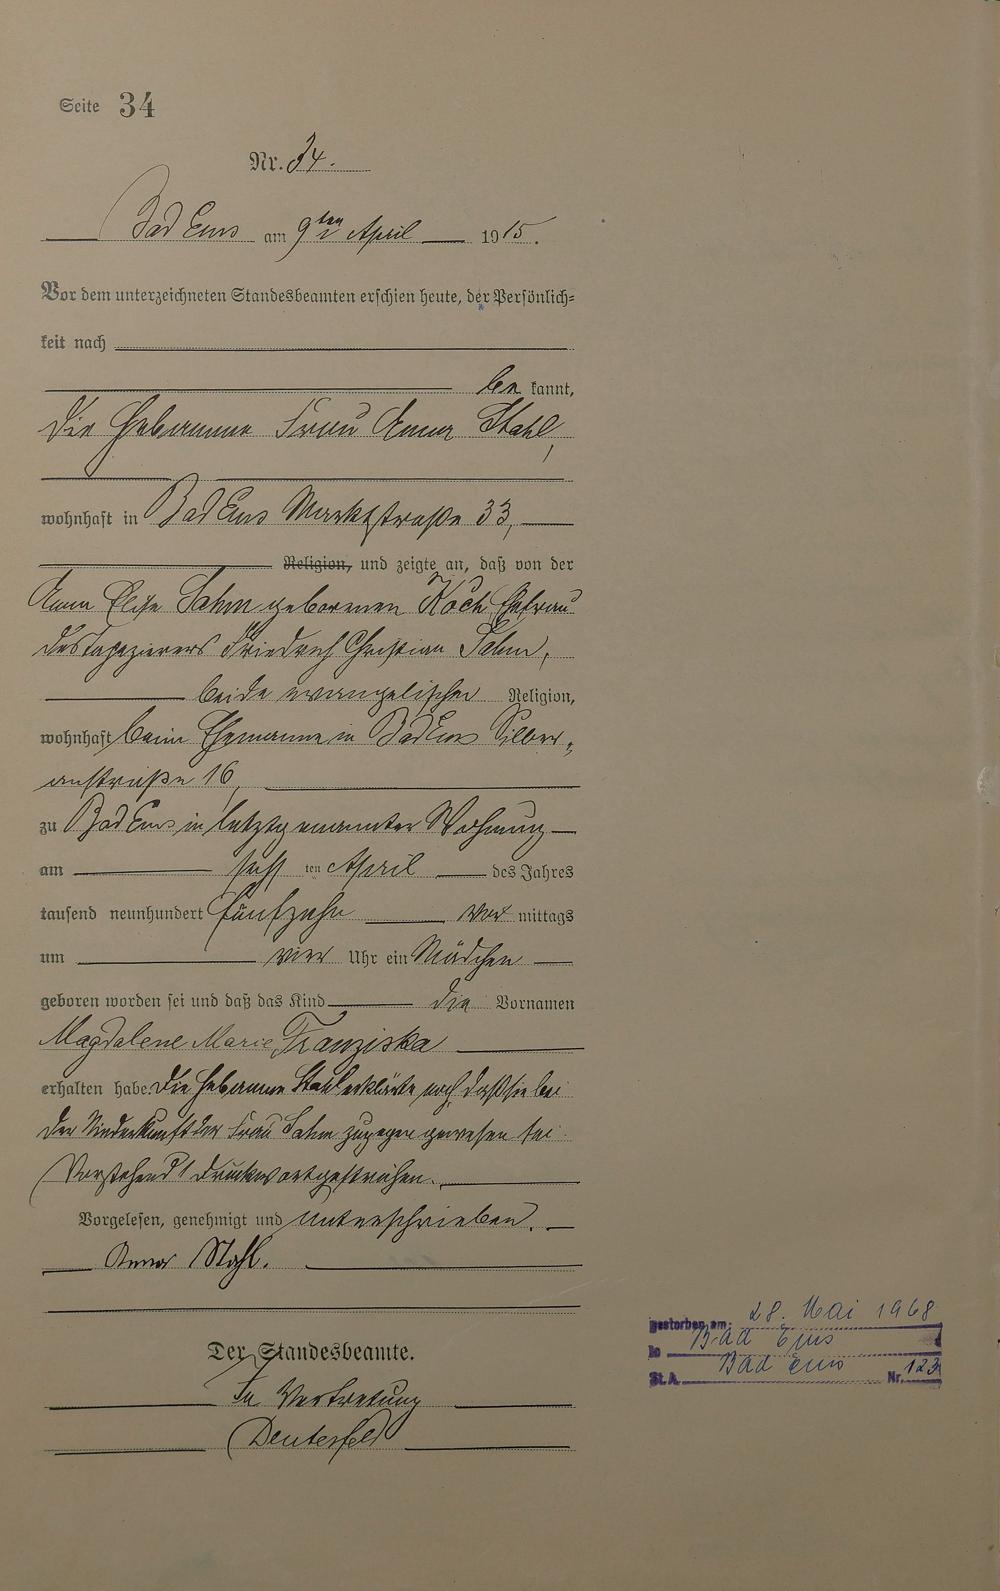 Seite 34
Nr. 34.
Bad Ems am 9ten April 1915.
Vor dem unterzeichneten Standesbeamten erschien heute, der Persönlich-
keit nach
be kannt,
die Hebamme Frau Anna Stahl,
wohnhaft in Bad Ems Marktstraße 33,
Religion, und zeigte an, daß von der
Anna Elise Sahm geborenen Koch Ehefrau
des Tapezierers Friedrich Christian Sahm,
beide evangelischer Religion,
wohnhaft beim Ehemanne in Bad Ems Silber-
austraße 16,
zu Bad Ems in letztgenannter Wohnung
am sechs ten April des Jahres
tausend neunhundert fünfzehn vor mittags
um vier Uhr ein Mädchen
geboren worden sei und daß das Kind die Vornamen
Magdalene Marie Franziska
erhalten habe. Die Hebamme Stahl erklärte noch, daß sie bei
der Niederkunft der Frau Sahm zugegen gewesen sei.
Vorstehend 1 Druckwort gestrichen.
Vorgelesen, genehmigt und unterschrieben.
Anna Stahl.
Der Standesbeamte.
In Vertretung
gestorben am: 28. Mai 1968
in Bad Ems
St.A. Bad Ems Nr. 123